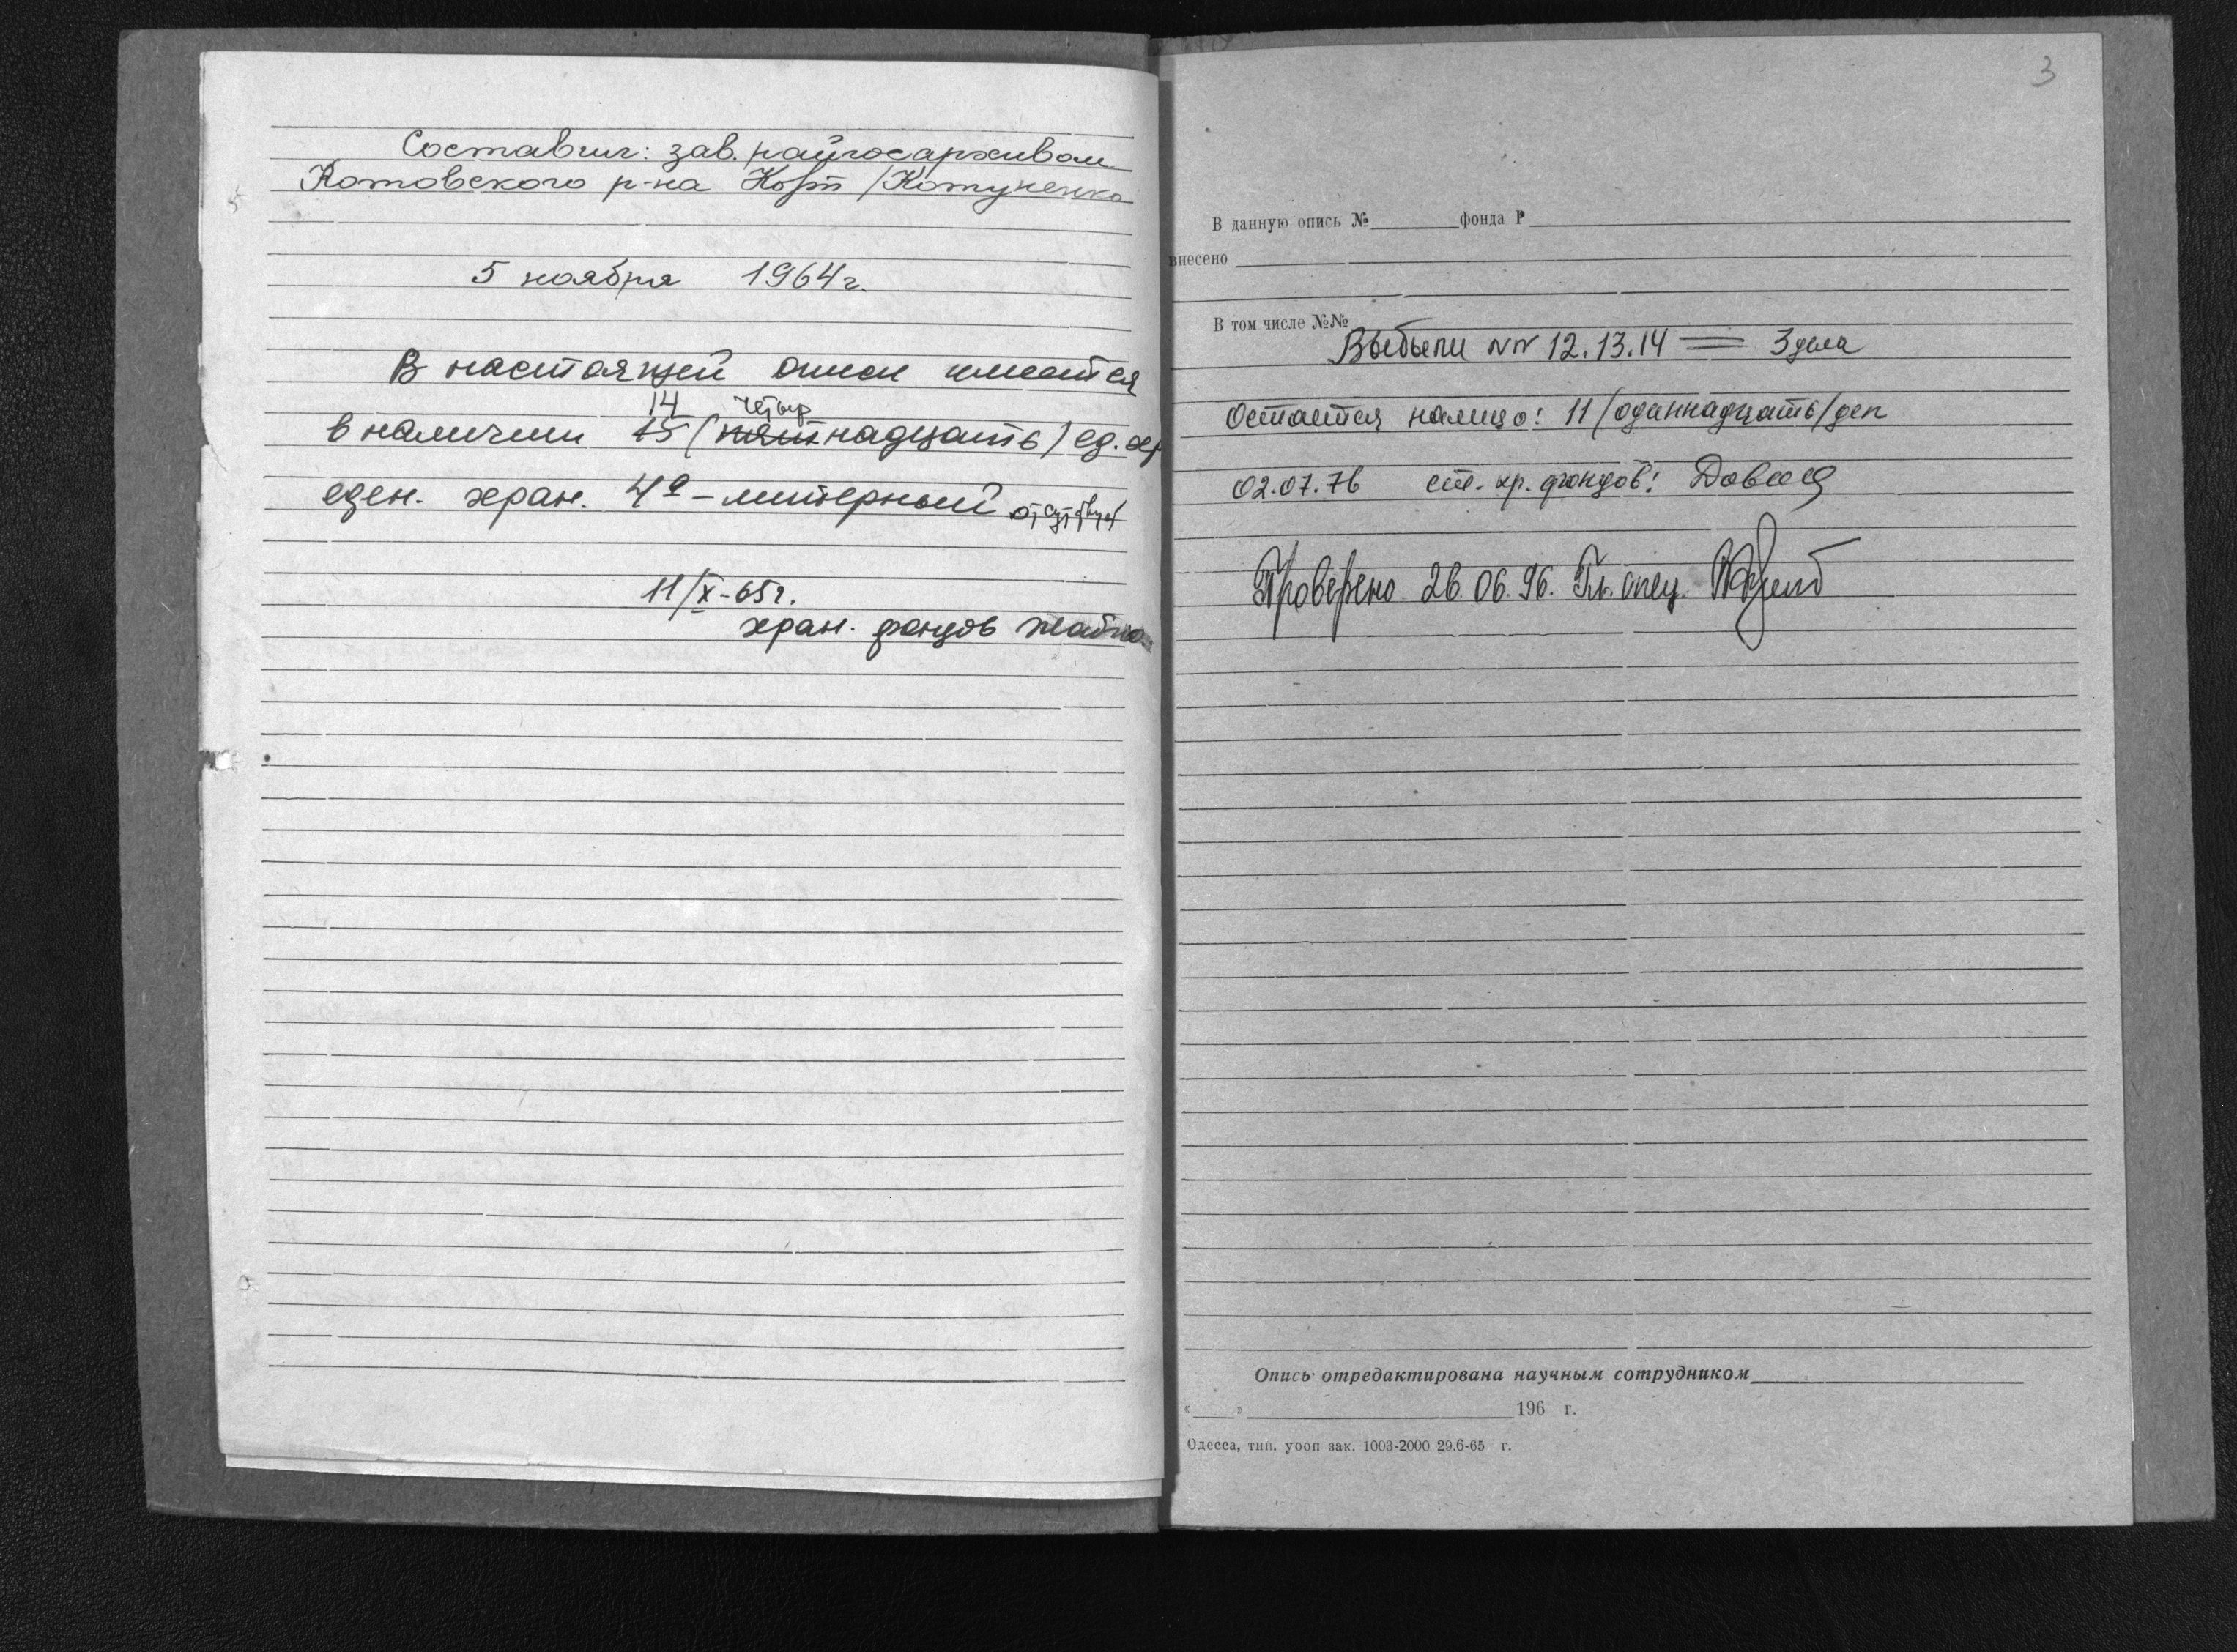 Составил: зав. райгосархивом
Котовского р-на /Котуненко
5 ноября 1964 г.
В настоящей описи имеется
14 четыр
в наличии 15 (пятнадцать) ед. хр
еден. хран. 4а – литерный отсутствует
11/X-65 г.
хран. фондов
3
В данную опись № фонда Р
внесено
В том числе №№
Выбыли NN 12.13.14 = 3 дела
Остается налицо: 11 /одиннадцать/ дел
02.07.76 ст. хр. фондов:
Проверено 26.06.96. Гл. спец.
Опись отредактирована научным сотрудником
« » 196 г.
Одесса, тип. уооп зак. 1003-2000 29.6-65 г.